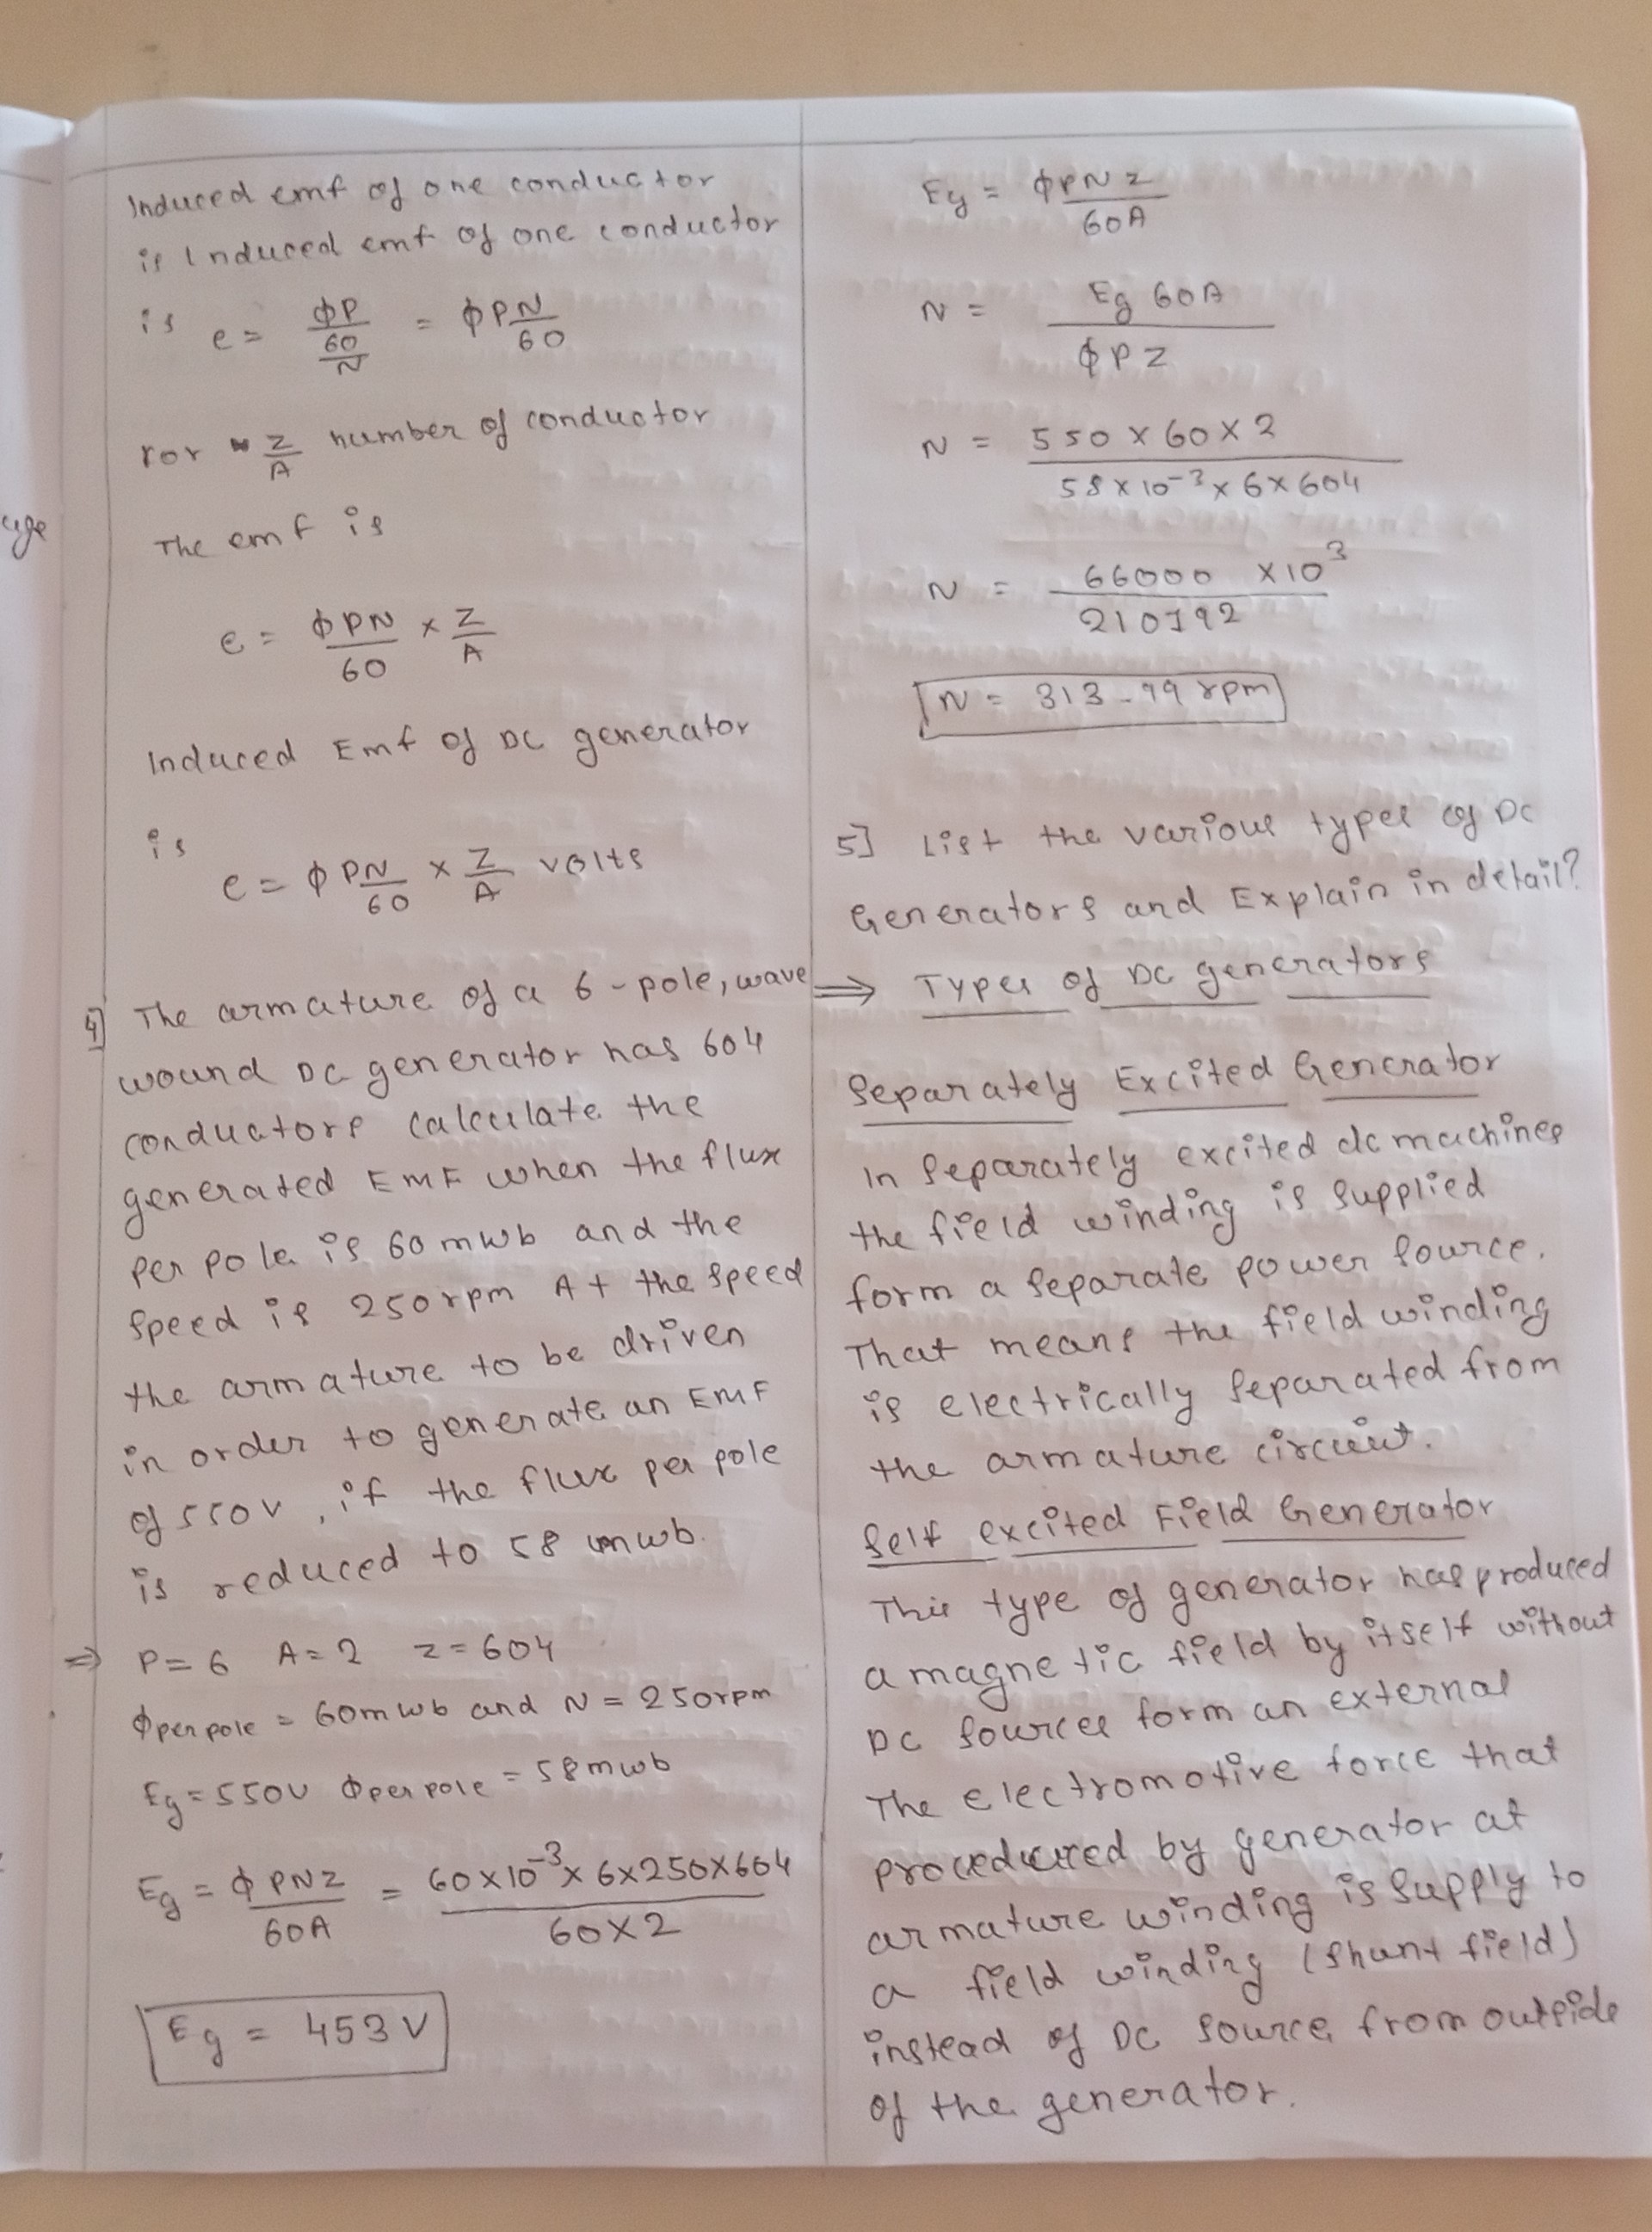 Induced emf of one conductor
is Induced emf of one conductor
is e = ΦP / (60/N) = ΦPN/60
For Z/A number of conductor
The emf is
e = ΦPN/60 × Z/A
Induced Emf of DC generator
is
e = ΦPN/60 × Z/A volts
4] The armature of a 6-pole, wave
wound DC generator has 604
conductors calculate the
generated EMF when the flux
per pole is 60 mwb and the
speed is 250rpm At the speed
the armature to be driven
in order to generate an EMF
of 550V, if the flux per pole
is reduced to 58 mwb.
⇒ P=6 A=2 Z=604
Φper pole = 60mwb and N = 250rpm
Eg=550V Φper pole = 58mwb
Eg = ΦPNZ/60A = 60×10⁻³×6×250×604 / 60×2
Eg = 453V
Eg = ΦPNZ/60A
N = Eg 60A / ΦPZ
N = 550×60×2 / 58×10⁻³×6×604
N = 66000 ×10³ / 210192
N = 313.99rpm
5] List the various types of DC
Generators and Explain in detail?
⇒ Types of DC generators
Separately Excited Generator
In Separately excited dc machines
the field winding is supplied
form a separate power source.
That means the field winding
is electrically separated from
the armature circuit.
Self excited Field Generator
This type of generator has produced
a magnetic field by itself without
DC sources form an external
The electromotive force that
proceduced by generator at
armature winding is supply to
a field winding (shunt field)
instead of DC source from outside
of the generator.